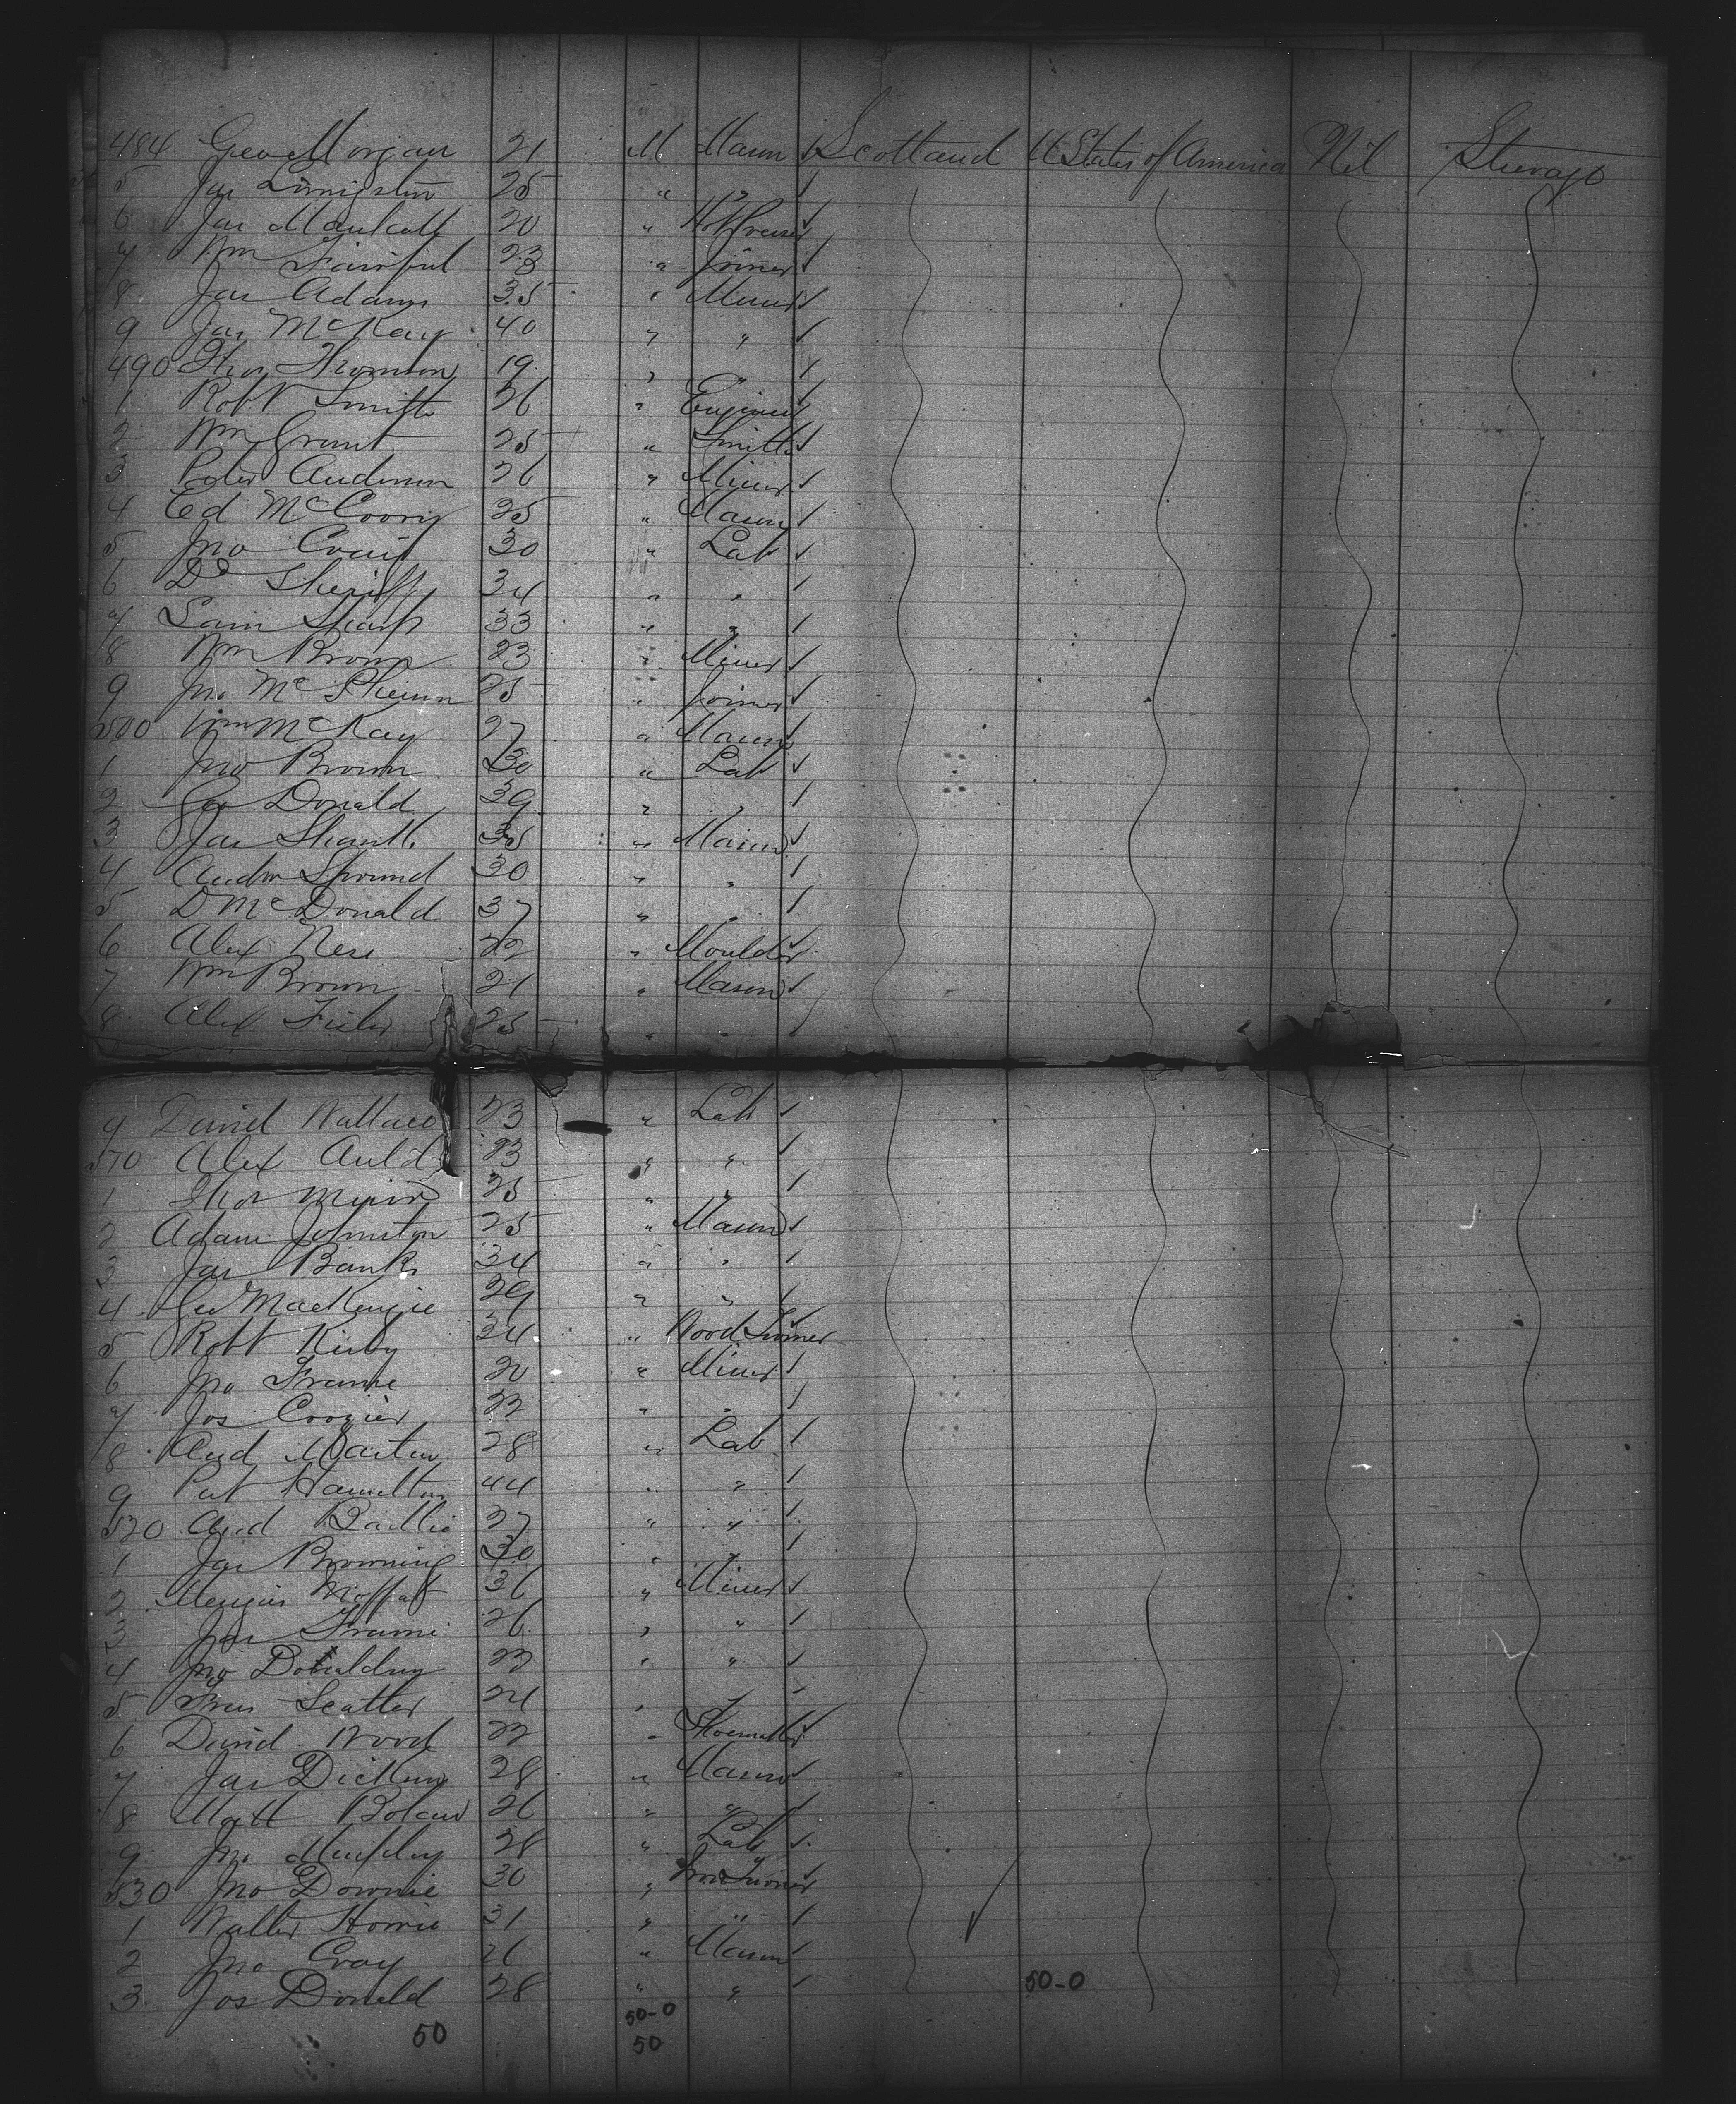 484 Geo Morgan 21 M Mason Scotland U States of America Nil Steerage
5 Jas Livingston 25 " "
6 Jas 20 "
7 Wm 23 " Joiner
8 Jas Adams 35 " Miner
9 Jas McKay 40 " "
490 Thos Thomson 19 " "
1 Robt Smith 26 " Engineer
2 Wm Grant 25 " Smith
3 Peter Anderson 26 " Miner
4 Ed McCoory 25 " Mason
5 Jno Craig 30 " Lab
6 Do Sheriff 34 " "
7 Sam Sharp 33 " "
8 Wm Brown 23 " Miner
9 Jno Mc 25 " Joiner
500 Wm McKay 27 " Mason
1 Jno Brown 30 " Lab
2 Geo Donald 39 " "
3 Jas 35 " Mason
4 Andw 30 " "
5 D McDonald 37 " "
6 Alex Ness 22 " Moulder
7 Wm Brown 21 " Mason
8 Alex 25 " "
9 David Wallace 23 " Lab
510 Alex Auld 23 " "
1 Thos Muir 25 " "
2 Adam Johnston 25 " Mason
3 Jas Banks 34 " "
4 Geo MacKenzie 29 " "
5 Robt Kirby 34 " Wood Turner
6 Jno Frame 20 " Miner
7 Jos Crozier 22 " "
8 And Martin 28 " Lab
9 Pat Hamilton 44 " "
520 And Baillie 27 " "
1 Jas Browning 30 " "
2 Moffat 36 " Miner
3 Jas Frame 26 " "
4 Jno Donaldson 22 " "
5 Scatter 24 " "
6 David Wood 22 " Shoemaker
7 Jas Dickson 28 " Mason
8 Matt 26 " "
9 Jno Murphy 28 " Lab
530 Jno Downie 30 " Iron Turner
1 Walter Howie 31 " "
2 Jno Gray 26 " Mason
3 Jos Donald 28 " " 50-0
50-0
50 50